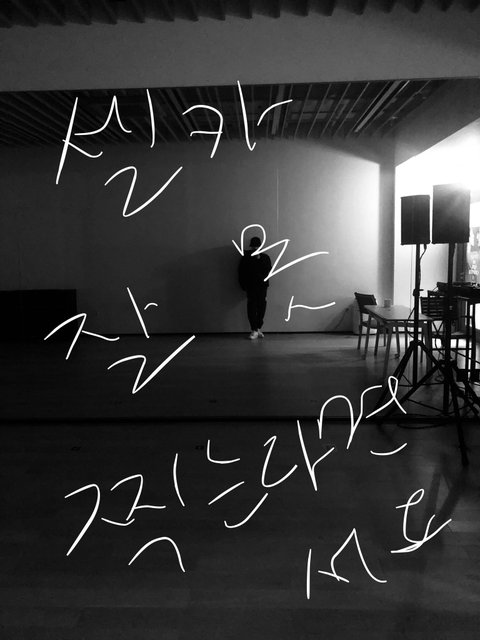 셀카
잘 못
찍는다면
서요